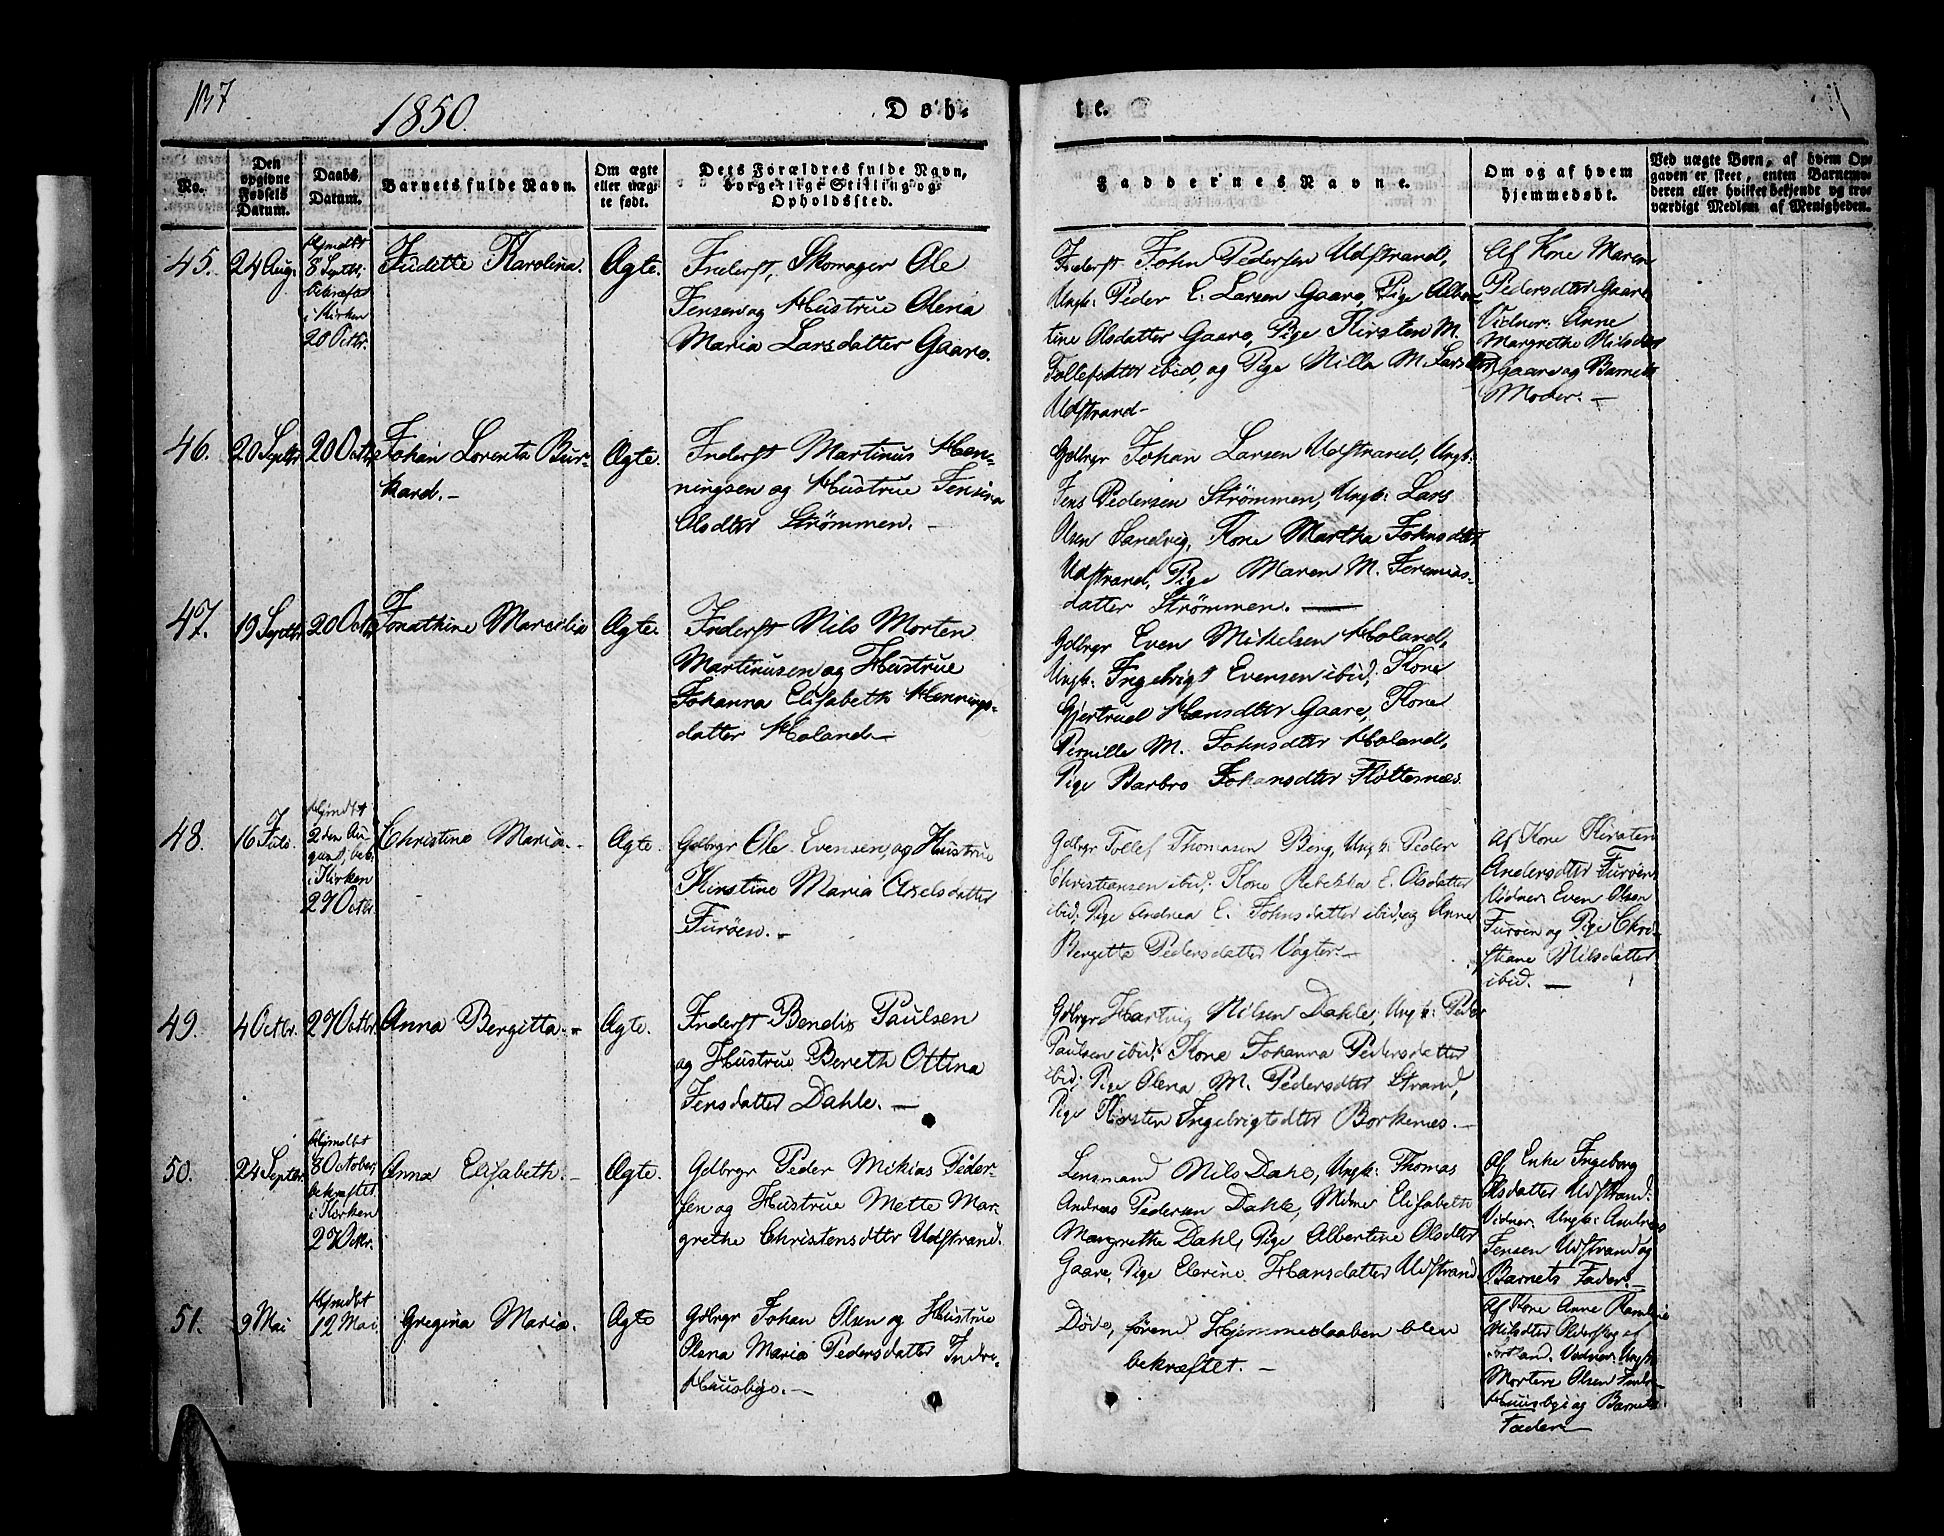 137
1850.
Døb-
te.
No.
Den opgivne Fødsels Datum.
Daabs Datum.
Barnets fulde Navn.
Om ægte eller uægte født.
Dets Forældres fulde Navn, borgerlige Stilling og Opholdssted.
Faddernes Navne.
Om og af hvem hjemmedøbt.
Ved uægte Børn, af hvem Opgaven er skeet, enten Barnemoderen eller hvilket bekjendt og troværdigt Medlem af Menigheden.
45.
24 Aug.
Hjmdbt
8 Septbr.
bekræftet
i Kirken
20 Octbr.
Judette Karolina.
Ægte.
Inderst, Skomager Ole
Jensen og Hustrue Olena
Maria Larsdatter Gaare.
Inderst John Pedersen Udstrand,
Ungk: Peder E. Larsen Gaare, Pige Alber-
tine Olsdatter Gaare, Pige Kirsten M.
Tollefsdtter ibid, og Pige Nilla M. Larsdtter
Udstrand-
Af Kone Maren
Pedersdtter Gaare
Vidner: Anne
Margrethe Nilsdtter
Gaare og Barnets
Moder. -
46.
20 Septbr
20 Octbr
Johan Lorents Bur-
hard. -
Ægte.
Inderst Martinus Hen-
ningsen og Hustrue Jensina
Olsdtter Strømmen. -
Gdbrgr Johan Larsen Udstrand, Ungk:
Jens Pedersen Strømmen, Ungk: Lars
Olsen Sandvig, Kone Martha Johnsdtter
Udstrand, Pige Maren M. Jeremias-
datter Strømmen. -
47.
19 Septbr.
20 Octbr
Jonathine Marcelie
Ægte.
Inderst Nils Morten
Martinusen og Hustrue
Johanna Elisabeth Hennings-
datter Holand -
Gdbrgr Even Mikelsen Holand,
Ungk: Ingebrigt Evensen ibid, Kone
Gjertrud Hansdtter Gaare, Kone
Pernille M. Johnsdtter Holand,
Pige Barbro Johansdtter Flotternæs.
48.
16 Juli.
Hjmdbt
2den Au-
gust, bek.
i Kirken
27 Octbr.
Christine Maria. -
Ægte.
Gdbrgr Ole Evensen, og Hustrue
Kirstine Maria Axelsdatter
Furøen. -
Gdbrgr Tollef Thomasen Berg, Ungk: Peder
Christiansen ibid: Kone Rebekka E. Olsdatter
ibid; Pige Andrea E. Johnsdatter ibid, og Anne
Bergitta Pedersdatter Vagter. -
Af Kone Kirsten
Andersdtter Furøen
Vidner Even Olsen
Furøen og Pige Chri-
stiane Nilsdatter
ibid. -
49.
4 Octbr.
27 Octbr.
Anna Bergitta. -
Ægte.
Inderst Bendix Paulsen
og Hustrue Bereth Ottina
Jensdatter Dahle. -
Gdbrgr Hartvig Nilsen Dahle, Ungk: Peder
Paulsen ibid: Kone Johanna Pedersdatter
ibid; Pige Olena M. Pedersdtter Strand,
Pige Kirsten Ingebrigtsdtter Borkenæs. -
50.
24 Septbr.
Hjmdbt
8 October,
bekræftet
i Kirken
27 Octbr.
Anna Elisabeth. -
Ægte.
Gdbrgr Peder Mikias Peder-
sen og Hustrue Mette Mar-
grethe Christensdtter Udstrand.
Lensmand Nils Dahl, Ungk: Thomas
Andreas Pedersen Dahle, Md̃me Elisabeth
Margrethe Dahl, Pige Albertine Olsdtter
Gaare, Pige Elerine Hansdatter Udstrand
Af Enke Ingeborg
Olsdatter Udstrand:
Vidner: Ungk: Andreas
Jensen Udstrand og
Barnets Fader. -
51.
9 Mai
Hjmdbt
12 Mai
Gregina Maria.
Ægte
Gdbrgr Johan Olsen og Hustrue
Olena Maria Pedersdatter Indre-
Huusbye. -
Døde, førend Hjemmedaaben blev
bekræftet. -
Af Kone Anne
Nilsdtter
Vidner: Ungk:
Morten Olsen Indre
Huusbye og Barnets
Fader